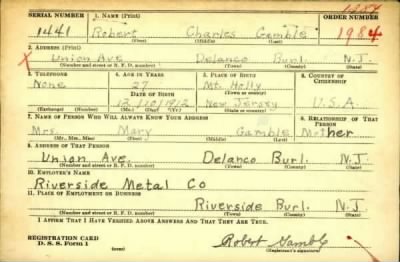 1284
SERIAL NUMBER 1. NAME (Print) ORDER NUMBER
1441 Robert Charles Gamble 1984
(First) (Middle) (Last)
2. ADDRESS (Print)
X Union Ave Delanco Burl. N.J.
(Number and street or R. F. D. number) (Town) (County) (State)
3. TELEPHONE 4. AGE IN YEARS 5. PLACE OF BIRTH 6. COUNTRY OF CITIZENSHIP
None 27 Mt. Holly
DATE OF BIRTH (Town or county)
12 10 1912 New Jersey U.S.A.
(Exchange) (Number) (Mo.) (Day) (Yr.) (State or country)
7. NAME OF PERSON WHO WILL ALWAYS KNOW YOUR ADDRESS 8. RELATIONSHIP OF THAT PERSON
Mrs. Mary Gamble Mother
(Mr., Mrs., Miss) (First) (Middle) (Last)
9. ADDRESS OF THAT PERSON
Union Ave. Delanco Burl. N.J.
(Number and street or R. F. D. number) (Town) (County) (State)
10. EMPLOYER'S NAME
Riverside Metal Co
11. PLACE OF EMPLOYMENT OR BUSINESS
Riverside Burl. N.J.
(Number and street or R. F. D. number) (Town) (County) (State)
I AFFIRM THAT I HAVE VERIFIED ABOVE ANSWERS AND THAT THEY ARE TRUE.
REGISTRATION CARD
D. S. S. Form 1 Robert Gamble
(Registrant's signature)